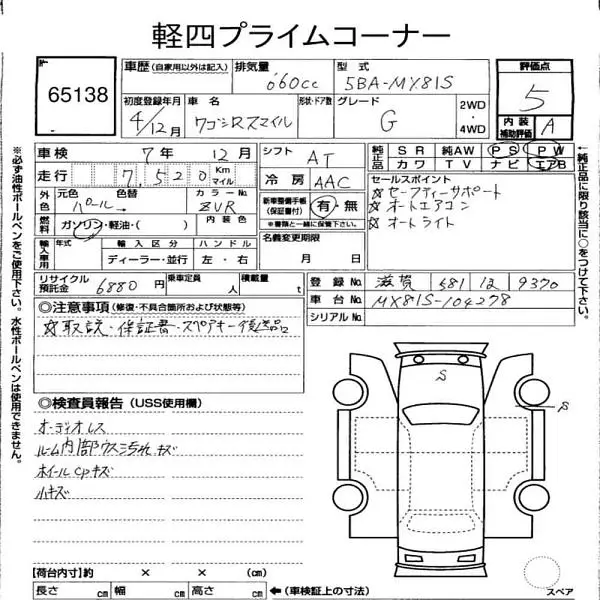 軽四プライムコーナー
65138
車歴 (自家用以外は記入) 排気量 型式 評価点
660cc 5BA-MX81S 5
初度登録年月 車名 形状・ドア数 グレード 2WD・4WD 内装補助評価 A
4/12月 ワゴンRスマイル G
車検 7年 12月 シフト AT 純正品 SR 純AW PS PW
走行 7,520 Km マイル 冷房 AAC カワ TV ナビ エアB
外色 元色 色替 カラーNo. 新車整備手帳(保証書付) 有・無 セールスポイント
パール→ ZVR ※書類と一緒に保管下さい。 ☆セーフティーサポート
燃料 ガソリン・軽油・( ) 内装色 ☆オートエアコン
輸入車用 年式 輸入区分 ハンドル 名義変更期限 ☆オートライト
ディーラー・並行 左・右 月 日
リサイクル預託金 6880円 乗車定員 人 積載量 t 登録No. 滋賀 581 い2 9370
車台No. MX81S-104278
シリアルNo.
◎注意事項 (修復・不具合箇所および状態等)
☆取説・保証書・スペアキー後送品
◎検査員報告 (USS使用欄)
オーディオレス
ルーム内部ウス汚れキズ
ホイールCPキズ
小キズ
S
S
【荷台内寸】約 × × (cm)
長さ cm 幅 cm 高さ cm ←(車検証上の寸法) スペア
※必ず油性ボールペンをご使用下さい。水性ボールペンは使用できません。
←純正品に限り該当に○をつけて下さい。